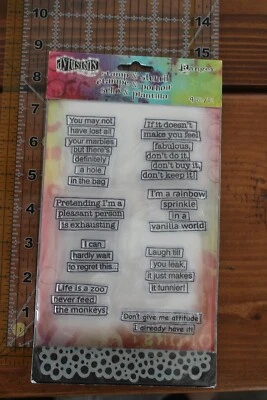 DYLUSIONS
stamp & stencil
You may not
have lost all
your marbles
but there's
definitely
a hole
in the bag
Pretending I'm a
pleasant person
is exhausting
I can
hardly wait
to regret this...
Life is a zoo
never feed
the monkeys
If it doesn't
make you feel
fabulous,
don't do it,
don't buy it,
don't keep it!
I'm a rainbow
sprinkle
in a
vanilla world
Laugh till
you leak,
it just makes
it funnier!
Don't give me attitude
I already have it!
10
9
8
7
6
5
4
3
2